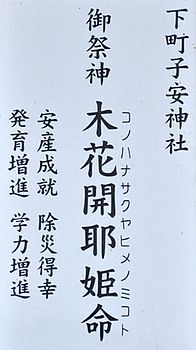 下町子安神社
御祭神
木花開耶姫命
コノハナサクヤヒメノミコト
安産成就 除災得幸
発育増進 学力増進